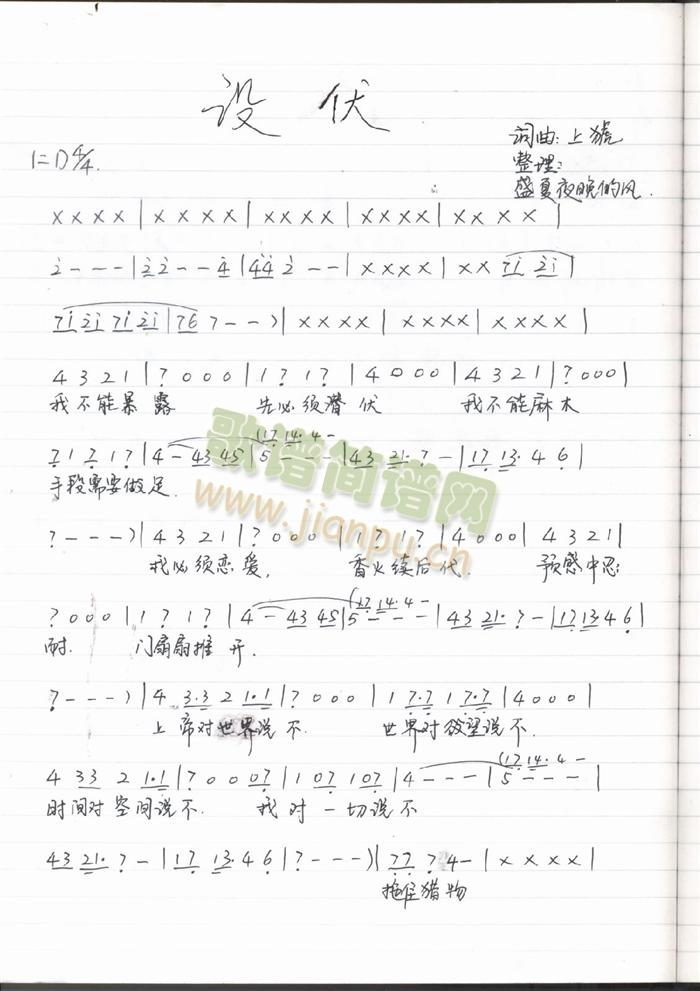 设伏
词曲:上猇
1=D 4/4.
整理:
盛夏夜晚的风.
x x x x | x x x x | x x x x | x x x x | x x x x |
2 - - - | 2 2 - - 4 | 4 4 2 - - | x x x x | x x 7i 2i |
7i 2i 7i 2i | 76 7 - - ) | x x x x | x x x x | x x x x |
4 3 2 1 | 7 0 0 0 | 1 7 1 7 | 4 0 0 0 | 4 3 2 1 | 7 0 0 0 |
我不能暴露 先必须潜伏 我不能麻木
(17 14· 4 -
7 1 7 1 7 | 4 - 43 45 | 5 - - - | 43 21· 7 - | 17 13· 4 6 |
手段需要做足.
7 - - - ) | 4 3 2 1 | 7 0 0 0 | 1 7 1 7 | 4 0 0 0 | 4 3 2 1 |
我必须恋爱, 香火续后代. 预感中忍
(17 14· 4 -
7 0 0 0 | 1 7 1 7 | 4 - 43 45 | 5 - - - | 43 21· 7 - | 17 13· 4 6 |
耐. 门扇扇推开.
7 - - - ) | 4 3·3 2 1·1 | 7 0 0 0 | 1 7·7 1 7·7 | 4 0 0 0 |
上帝对世界说不. 世界对欲望说不.
(17 14· 4 -
4 33 2 1·1 | 7 0 0 07 | 1 07 1 07 | 4 - - - | 5 - - - |
时间对空间说不. 我对一切说不
43 21· 7 - | 17 13· 4 6 | 7 - - - ) | 77 7 4 - | x x x x |
拖住猎物
歌谱简谱网
www.jianpu.cn